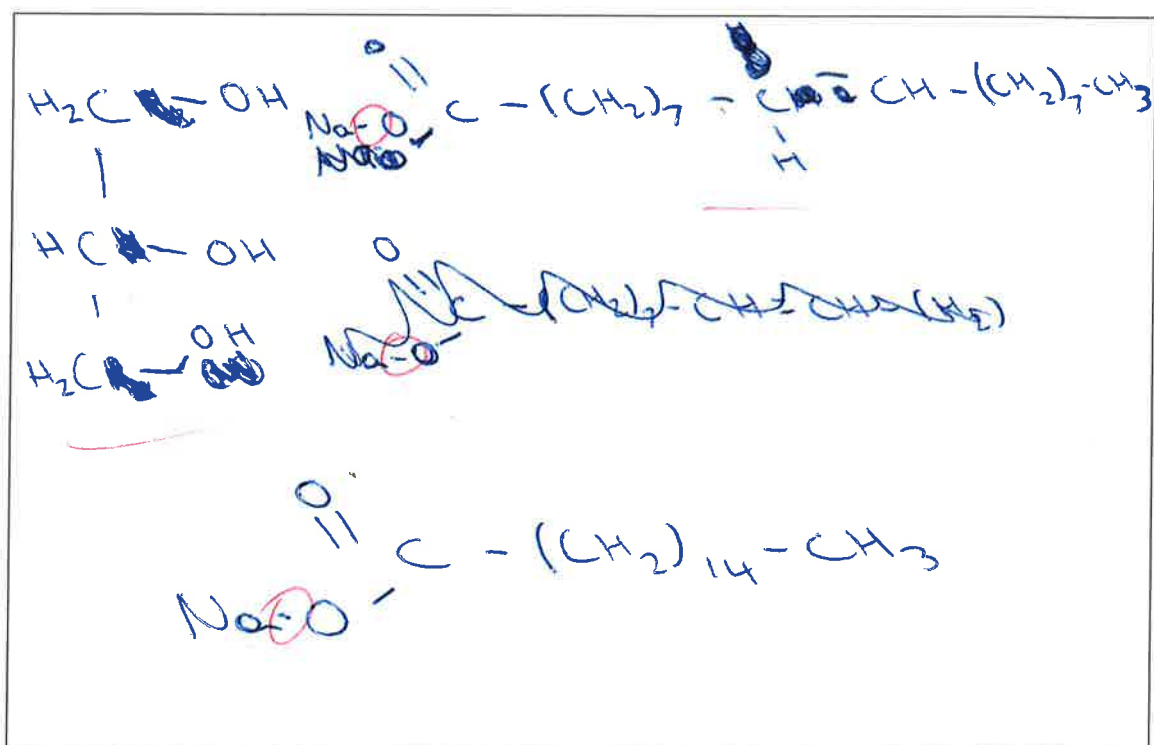 H₂C – OH
HC – OH
H₂C – OH
O
Na-O C – (CH₂)₇ – C = CH – (CH₂)₇-CH₃
H
O
Na-O C – (CH₂)₇ – CH = CH – (H₂)
O
Na-O C – (CH₂)₁₄ – CH₃